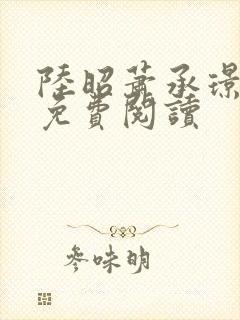 陸昭蕭承璟
免費閱讀
參味明